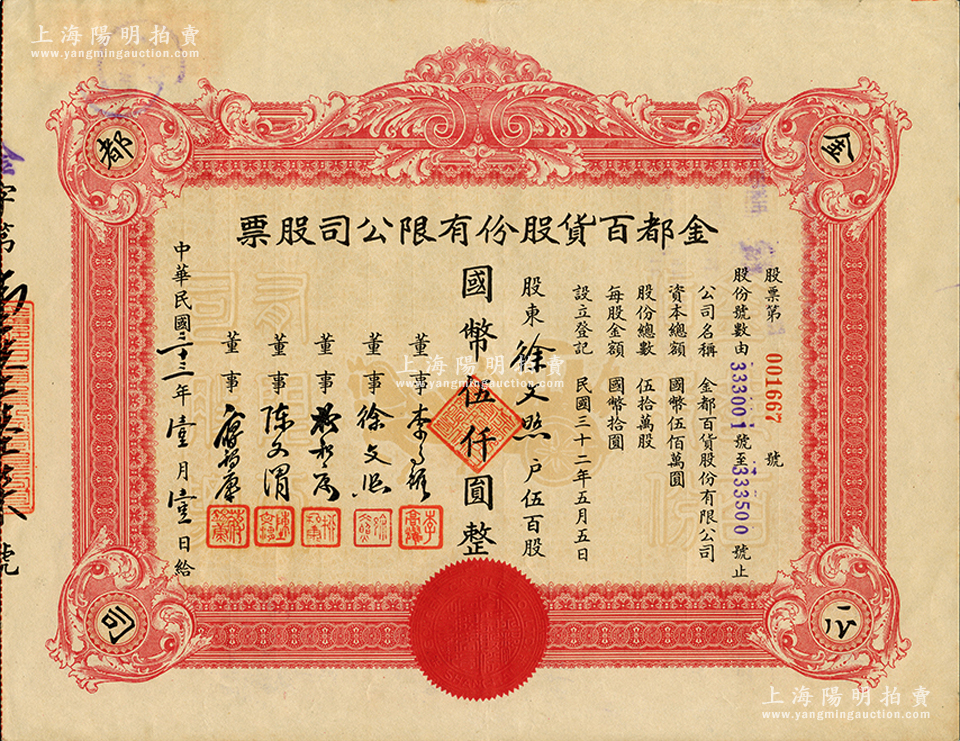 上海陽明拍賣
www.yangmingauction.com
金
都
公
司
金都百貨股份有限公司股票
股票第 001667 號
股份號數由 333001 號至 333500 號止
公司名稱 金都百貨股份有限公司
資本總額 國幣伍佰萬圓
股份總數 伍拾萬股
每股金額 國幣拾圓
設立登記 民國三十二年五月五日
股東 徐文照 戶伍百股
國幣伍仟圓整
董事
董事 徐文照
董事
董事 陈文渭
董事
中華民國三十三年壹月壹日給
字第
號
上海陽明拍賣
www.yangmingauction.com